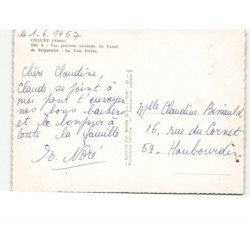 le 1-6-1967
CHAUNY (Aisne)
Vue générale aérienne. Le Canal
de St-Quentin - La Voie Ferrée.
Chère Claudine,
Claude se joint à
moi pour t'envoyer
nos bons baisers
et le bonjour à
toute la famille
Melle Claudine
16, rue du Cornet
59 - Haubourdin